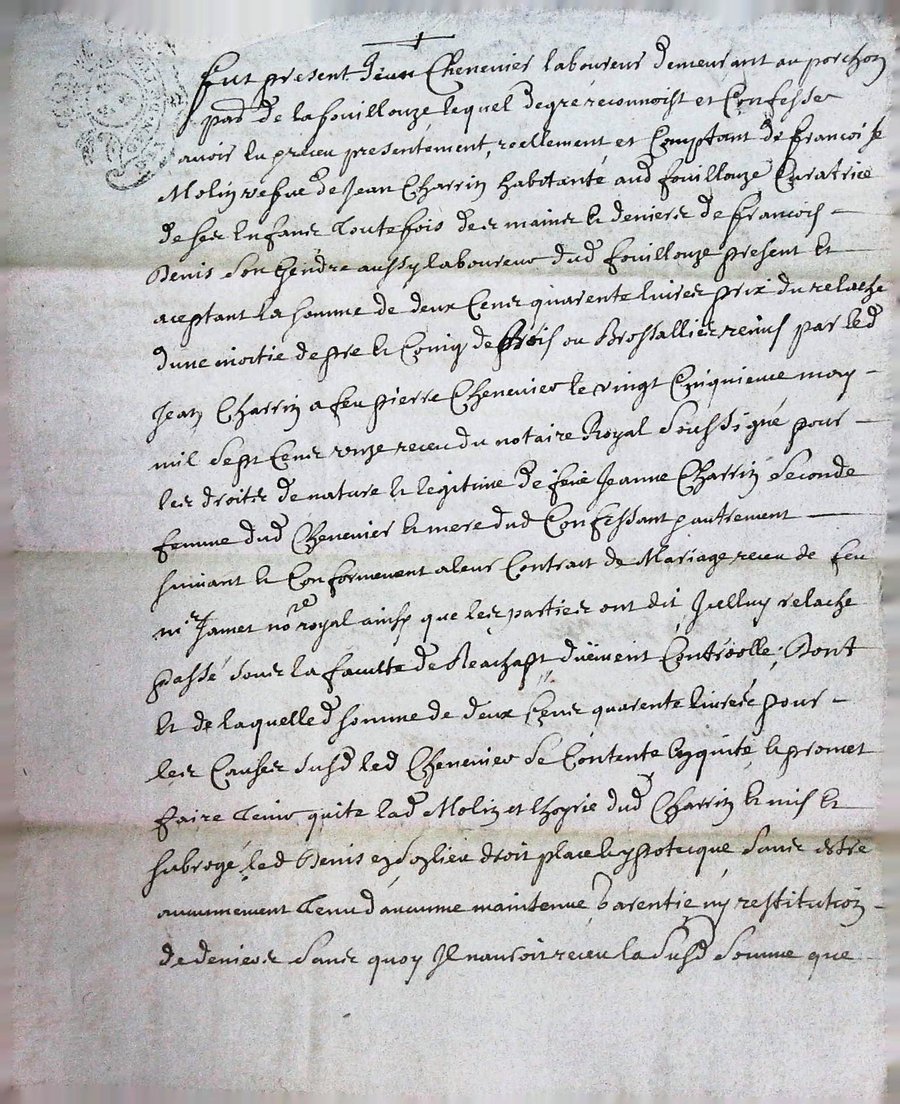 Fut present Jean Chenevier laboureur demeurant au porchon
parr de la fouillouze lequel de gre reconnoist et Confesse
avoir eu preceu presentement, reellement et Comptant de francoise
Molin vefue de Jean Charrin habitante aud fouillouze Curatrice
de ses Enfans Toutefois des mains et deniers de francois
Denis son gendre aussy laboureur dud fouillouze present et
aceptant la somme de deux Cens quarente livres prix du relache
dune moitie de pre et Coing de bois ou Brossallier remis par led
Jean Charrin a feu pierre Chenevier le vingt Cinquieme may
mil sept Cens unze receu du notaire Royal soussigné pour
les droits de nature et legitime de feüe Jeanne Charrin seconde
femme dud Chenevier et mere dud Confessant pautrement
suivant et Conformement a leur Contrait de Mariage receu de feu
mr Jamet nore royal ainsy que les parties ont dit Icelluy relache
passé sous la faculte de Reachapt düement Controolle, Dont
Et de laquelle d somme de deux Cens quarente livres pour
les Causes susd led Chenevier se Contente Enquite, et promet
faire Tenir quite lad Molin et lhoyrie dud Charrin et mis et
subrogé led Denis en son lieu droit place et ypoteque sans estre
aucunement Tenu daucune maintenue, Garentie ny restitution
de deniers sans quoy Il nauroit receu la susd somme que